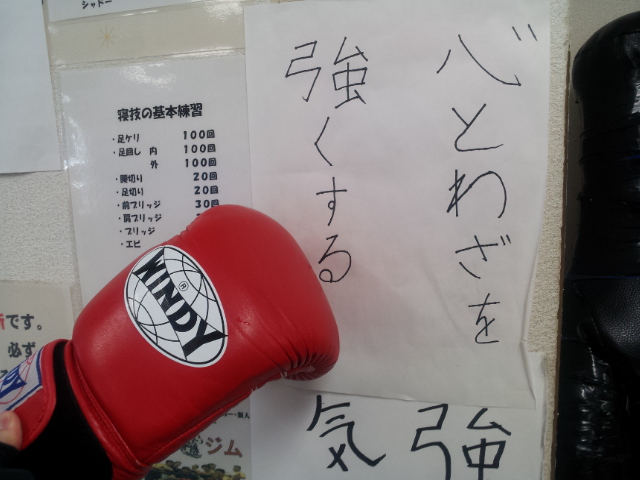 シャドー
寝技の基本練習
・足ケリ 100回
・足回し 内 100回
外 100回
・腰切り 20回
・足切り 20回
・前ブリッジ 30回
・肩ブリッジ
・ブリッジ
・エビ
心とわざを
強くする
強気
WINDY
です。
必ず
ジム